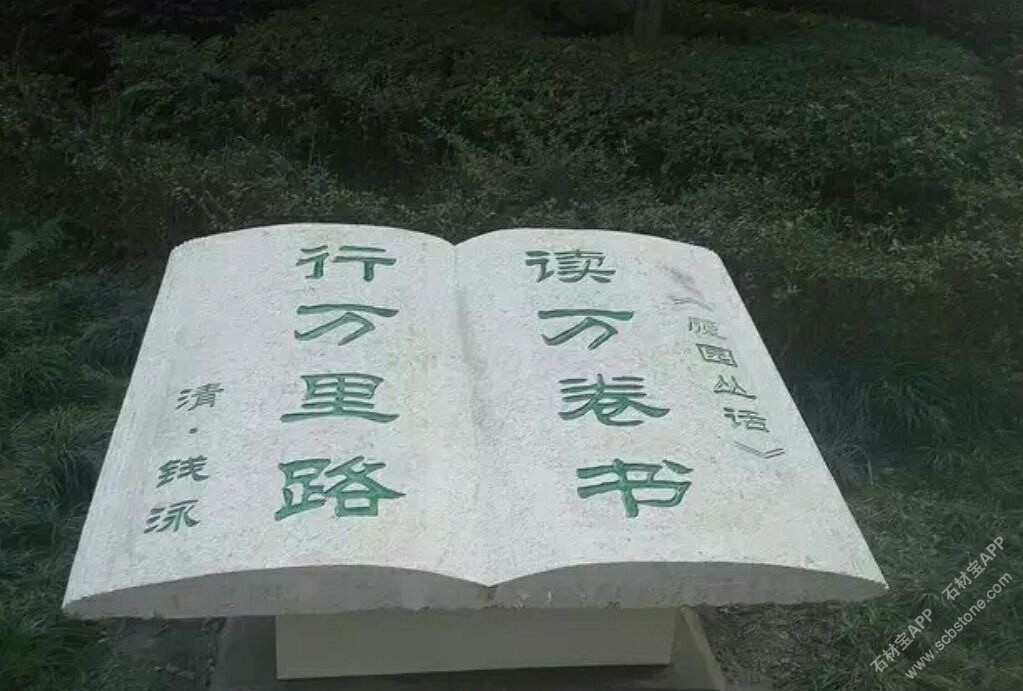 《履园丛话》
读万卷书
行万里路
清·钱泳
石材宝APP 石材宝APP
www.scbstone.com